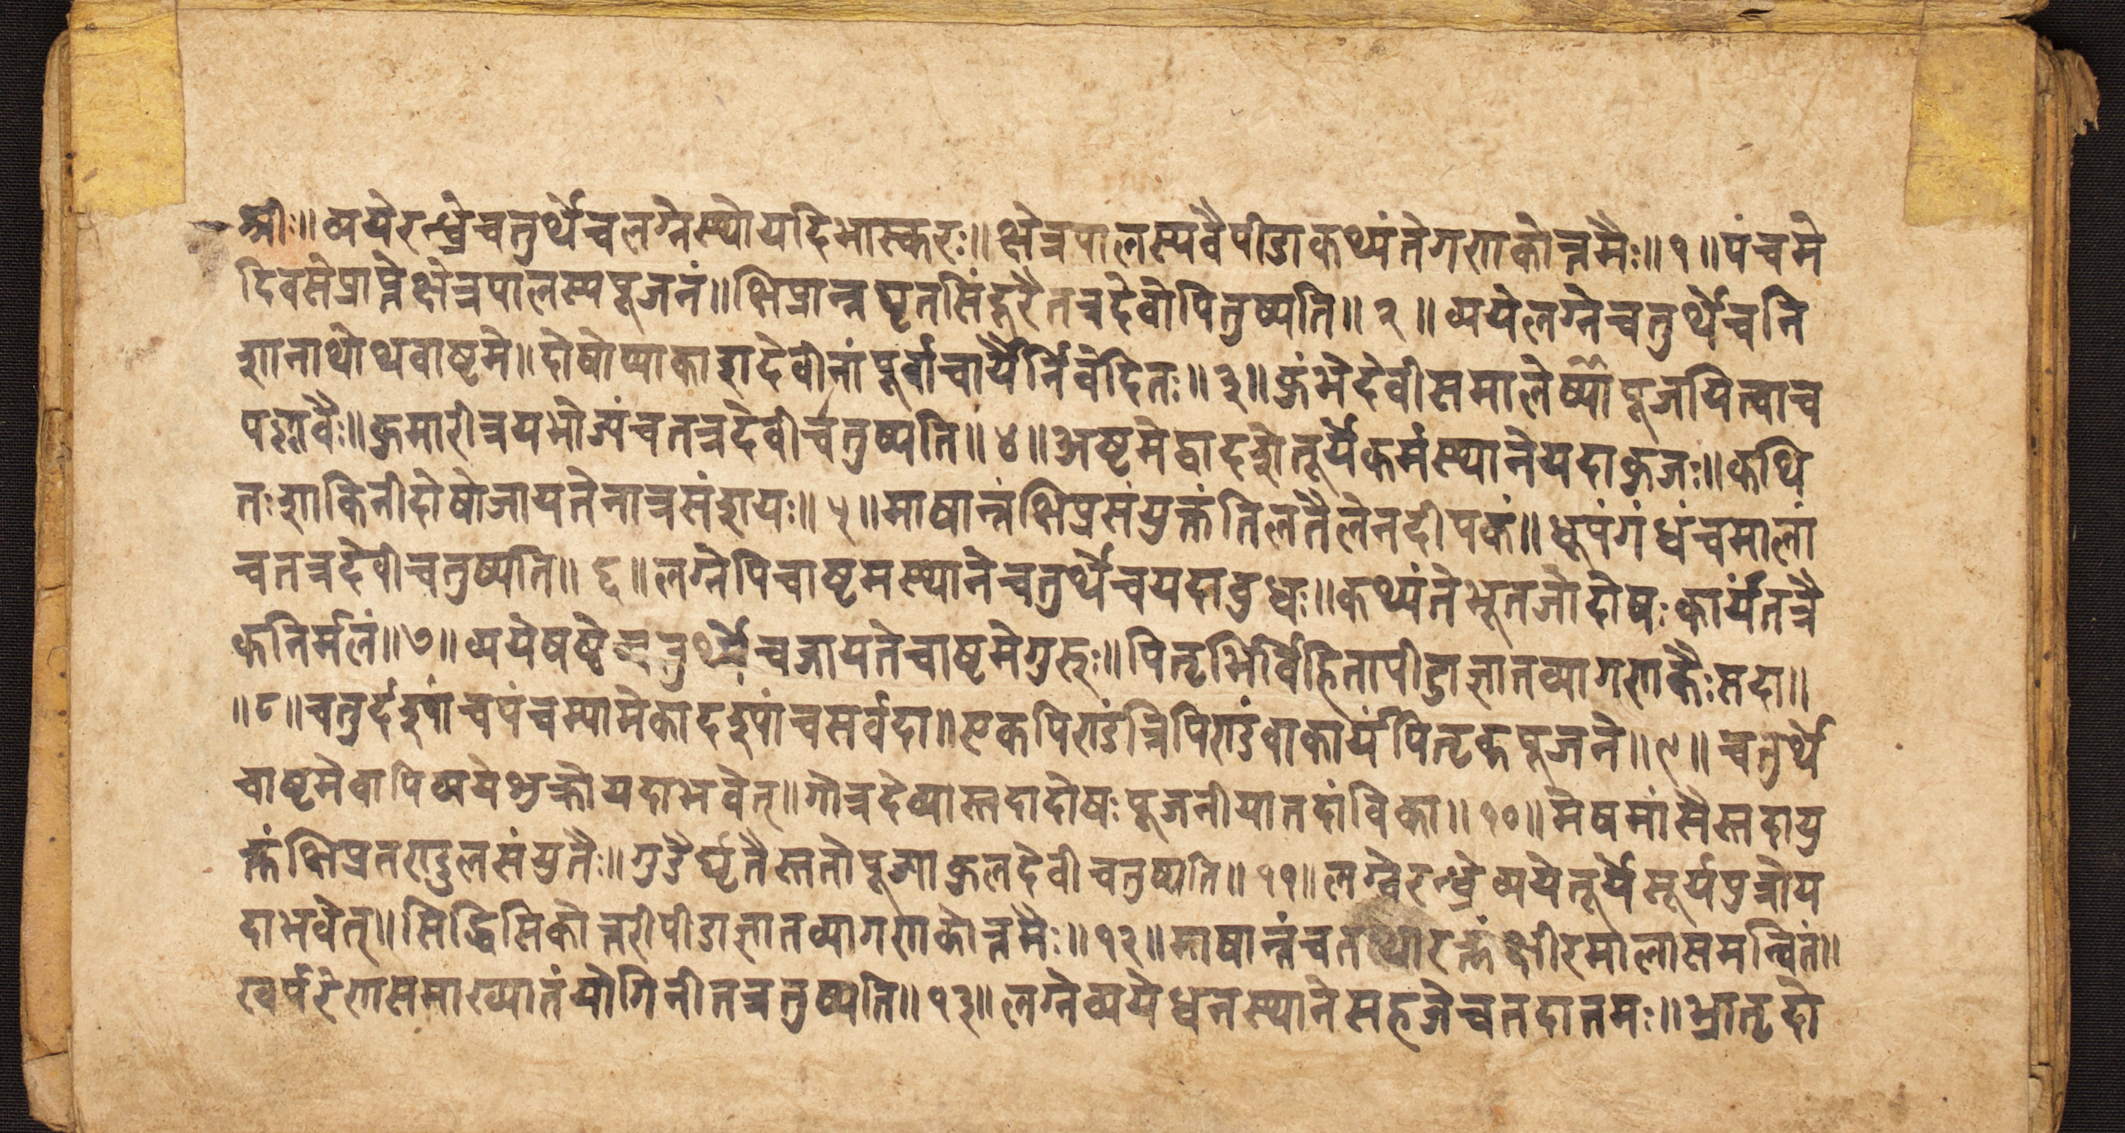 श्रीः॥ व्ययेरन्ध्रेचतुर्थेचलग्नेस्थोयदिभास्करः॥ क्षेत्रपालस्यवैपीडाकथ्यंतेगणकोत्तमैः॥१॥पंचमे
दिवसेप्राप्तेक्षेत्रपालस्यपूजनं॥क्षिप्रान्नघृतसिंदूरैतत्रदेवोपितुष्यति॥२॥ व्ययेलग्नेचतुर्थेचनि
शानाथोथवाष्टमे॥दोषोप्याकाशदेवीनांपूर्वाचार्यैर्निवेदितः॥३॥कुंभेदेवीसमालेष्यापूजयित्वाच
पल्लवैः॥कुमारीत्रयभोज्यंचतत्रदेवीचतुष्यति॥४॥अष्टमेद्वादशेतूर्येकर्मस्थानेयदाकुजः॥कथि
तःशाकिनीदोषोजायतेनात्रसंशयः॥५॥माषान्नंक्षिप्रसंयुक्तंतिलतैलेनदीपकं॥धूपंगंधंचमालां
चतत्रदेवीचतुष्यति॥६॥लग्नेपिचाष्टमस्थानेचतुर्थेचयदाबुधः॥कथ्यंतेभूतजोदोषःकार्यंतत्रै
कनिर्मलं॥७॥व्ययेषष्ठेचतुर्थेचजायतेचाष्टमेगुरुः॥पितृभिर्विहितापीडाज्ञातव्यागणकैःसदा॥
॥८॥चतुर्दश्यांचपंचम्यामेकादश्यांचसर्वदा॥एकपिण्डंत्रिपिण्डंवाकार्यंपितृकपूजने॥९॥ चतुर्थे
चाष्टमेवापिव्ययेशुक्रोयदाभवेत्॥गोत्रदेव्यास्तदादोषःपूजनीयातदांविका॥१०॥मेषमांसैस्तदायु
क्तंक्षिप्रतण्डुलसंयुतैः॥गुडैर्घृतैस्ततोपूज्याकुलदेवीचतुष्यति॥११॥लग्नेरन्ध्रेव्ययेतूर्येसूर्यपुत्रोय
दाभवेत्॥सिद्धिसिकोत्तरीपीडाज्ञातव्यागणकोत्तमैः॥१२॥माषान्नंचतथारक्तंक्षीरमालासमन्वितं॥
खर्परेणसमाख्यातंयोगिनीतत्रतुष्यति॥१३॥लग्नेव्ययेधनस्थानेसहजेचतदातमः॥भ्रातृदो